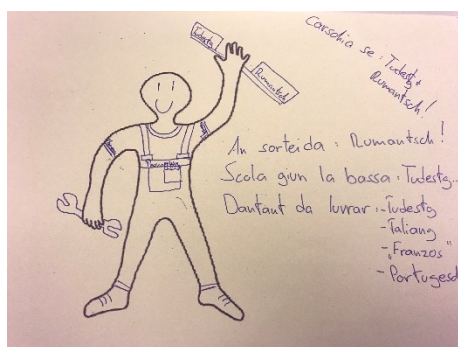 Carschia se: Tudestg+
Rumantsch!
Tudestg
Rumantsch
An sorteida: Rumantsch!
Scola giun la bassa: Tudestg...
Dantant da luvrar: -Tudestg
-Taliang
-"Franzos"
-Portugesd